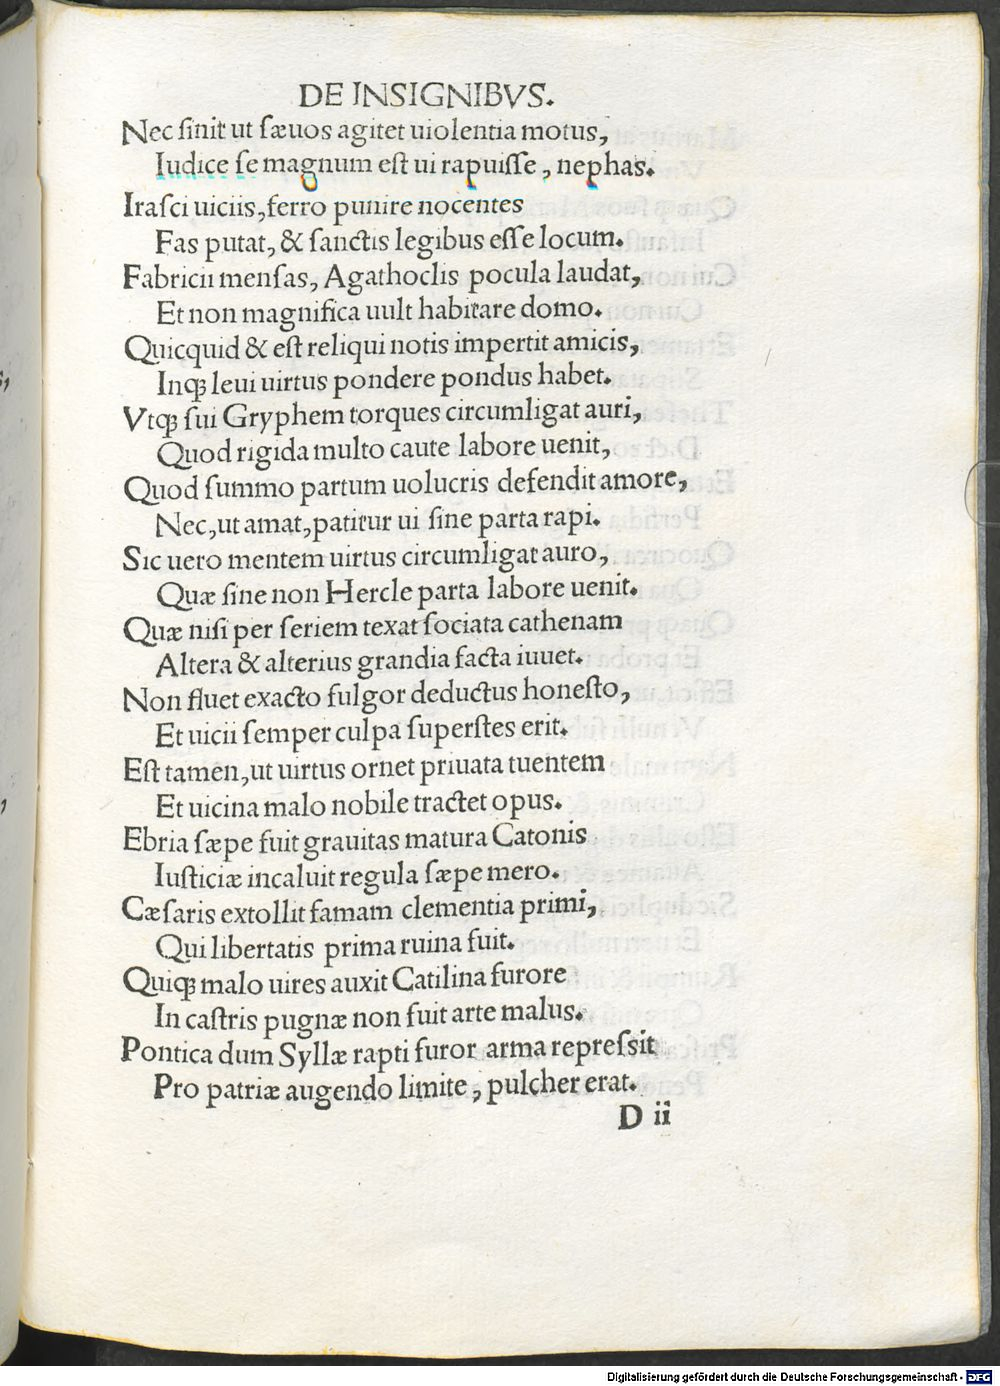 DE INSIGNIBVS.
Nec ſinit ut ſæuos agitet uiolentia motus,
Iudice ſe magnum eſt ui rapuiſſe, nephas.
Iraſci uiciis, ferro punire nocentes
Fas putat, & ſanctis legibus eſſe locum.
Fabricii menſas, Agathoclis pocula laudat,
Et non magnifica uult habitare domo.
Quicquid & eſt reliqui notis impertit amicis,
Inqꝫ leui uirtus pondere pondus habet.
Vtqꝫ ſui Gryphem torques circumligat auri,
Quod rigida multo caute labore uenit,
Quod ſummo partum uolucris defendit amore,
Nec, ut amat, patitur ui ſine parta rapi.
Sic uero mentem uirtus circumligat auro,
Quæ ſine non Hercle parta labore uenit.
Quæ niſi per ſeriem texat ſociata cathenam
Altera & alterius grandia facta iuuet.
Non fluet exacto fulgor deductus honeſto,
Et uicii ſemper culpa ſuperſtes erit.
Eſt tamen, ut uirtus ornet priuata tuentem
Et uicina malo nobile tractet opus.
Ebria ſæpe fuit grauitas matura Catonis
Iuſticiæ incaluit regula ſæpe mero.
Cæſaris extollit famam clementia primi,
Qui libertatis prima ruina fuit.
Quiqꝫ malo uires auxit Catilina furore
In caſtris pugnæ non fuit arte malus.
Pontica dum Syllæ rapti furor arma repreſſit
Pro patriæ augendo limite, pulcher erat.
D ii
Digitalisierung gefördert durch die Deutsche Forschungsgemeinschaft - DFG